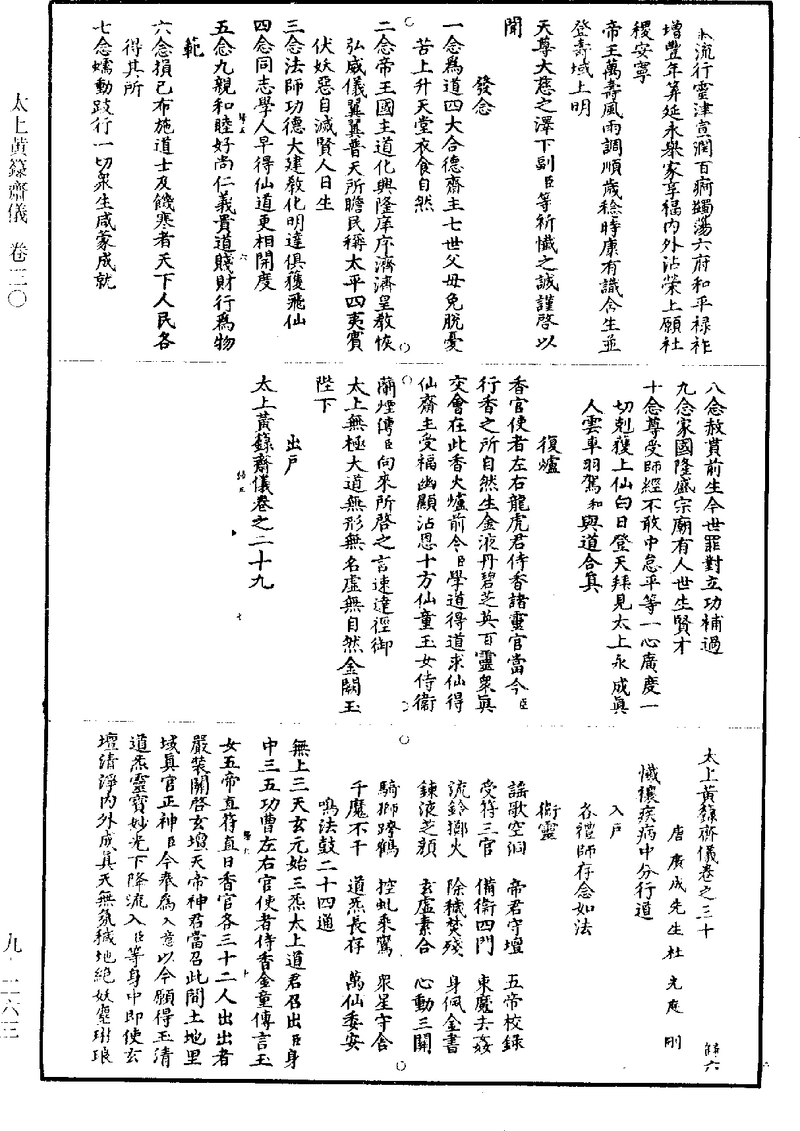 太上黃籙齋儀 卷三〇
九·二六三
流行靈津宣潤百痾蠲蕩六府和平祿祚
增豐年筭延永舉家享福內外沾榮上願社
稷安寧
帝王萬壽風雨調順歲稔時康有識含生並
登壽域上明
天尊大慈之澤下副臣等祈懺之誠謹啓以
聞
發念
一念爲道四大合德齋主七世父母免脫憂
苦上升天堂衣食自然
二念帝王國主道化興隆庠序濟濟皇教恢
弘威儀翼翼普天所瞻民稱太平四夷賓
伏妖惡自滅賢人日生
三念法師功德大建教化明達俱獲飛仙
四念同志學人早得仙道更相開度
五念九親和睦好尚仁義貴道賤財行爲物
範
六念損己布施道士及饑寒者天下人民各
得其所
七念蠕動跂行一切衆生咸蒙成就
八念赦貰前生今世罪對立功補過
九念家國隆盛宗廟有人世生賢才
十念尊受師經不敢中怠平等一心廣度一
切剋獲上仙白日登天拜見太上永成真
人雲車羽駕和與道合真
復爐
香官使者左右龍虎君侍香諸靈官當今臣
行香之所自然生金液丹碧芝英百靈衆真
交會在此香火爐前令臣學道得道求仙得
仙齋主受福幽顯沾恩十方仙童玉女侍衛
蘭煙傳臣向來所啓之言速達徑御
太上無極大道無形無名虛無自然金闕玉
陛下
出戶
太上黃籙齋儀卷之二十九
太上黃籙齋儀卷之三十
唐廣成先生杜光庭刪
懺禳疾病中分行道
入戶
各禮師存念如法
衛靈
謠歌空洞 帝君守壇 五帝校錄
受符三官 備衛四門 東魔去姦
流鈴擲火 除穢焚殘 身佩金書
鍊液芝顏 玄虛素合 心動三關
騎獅蹲鶴 控虬乘鸞 衆星守舍
千魔不干 道炁長存 萬仙委安
鳴法鼓二十四通
無上三天玄元始三炁太上道君召出臣身
中三五功曹左右官使者侍香金童傳言玉
女五帝直符直日香官各三十二人出出者
嚴裝關啓玄壇天帝神君當召此間土地里
域真官正神臣今奉爲入意以今願得玉清
道炁靈寶妙光下降流入臣等身中即使玄
壇清淨內外成真天無氛穢地絕妖塵琳琅